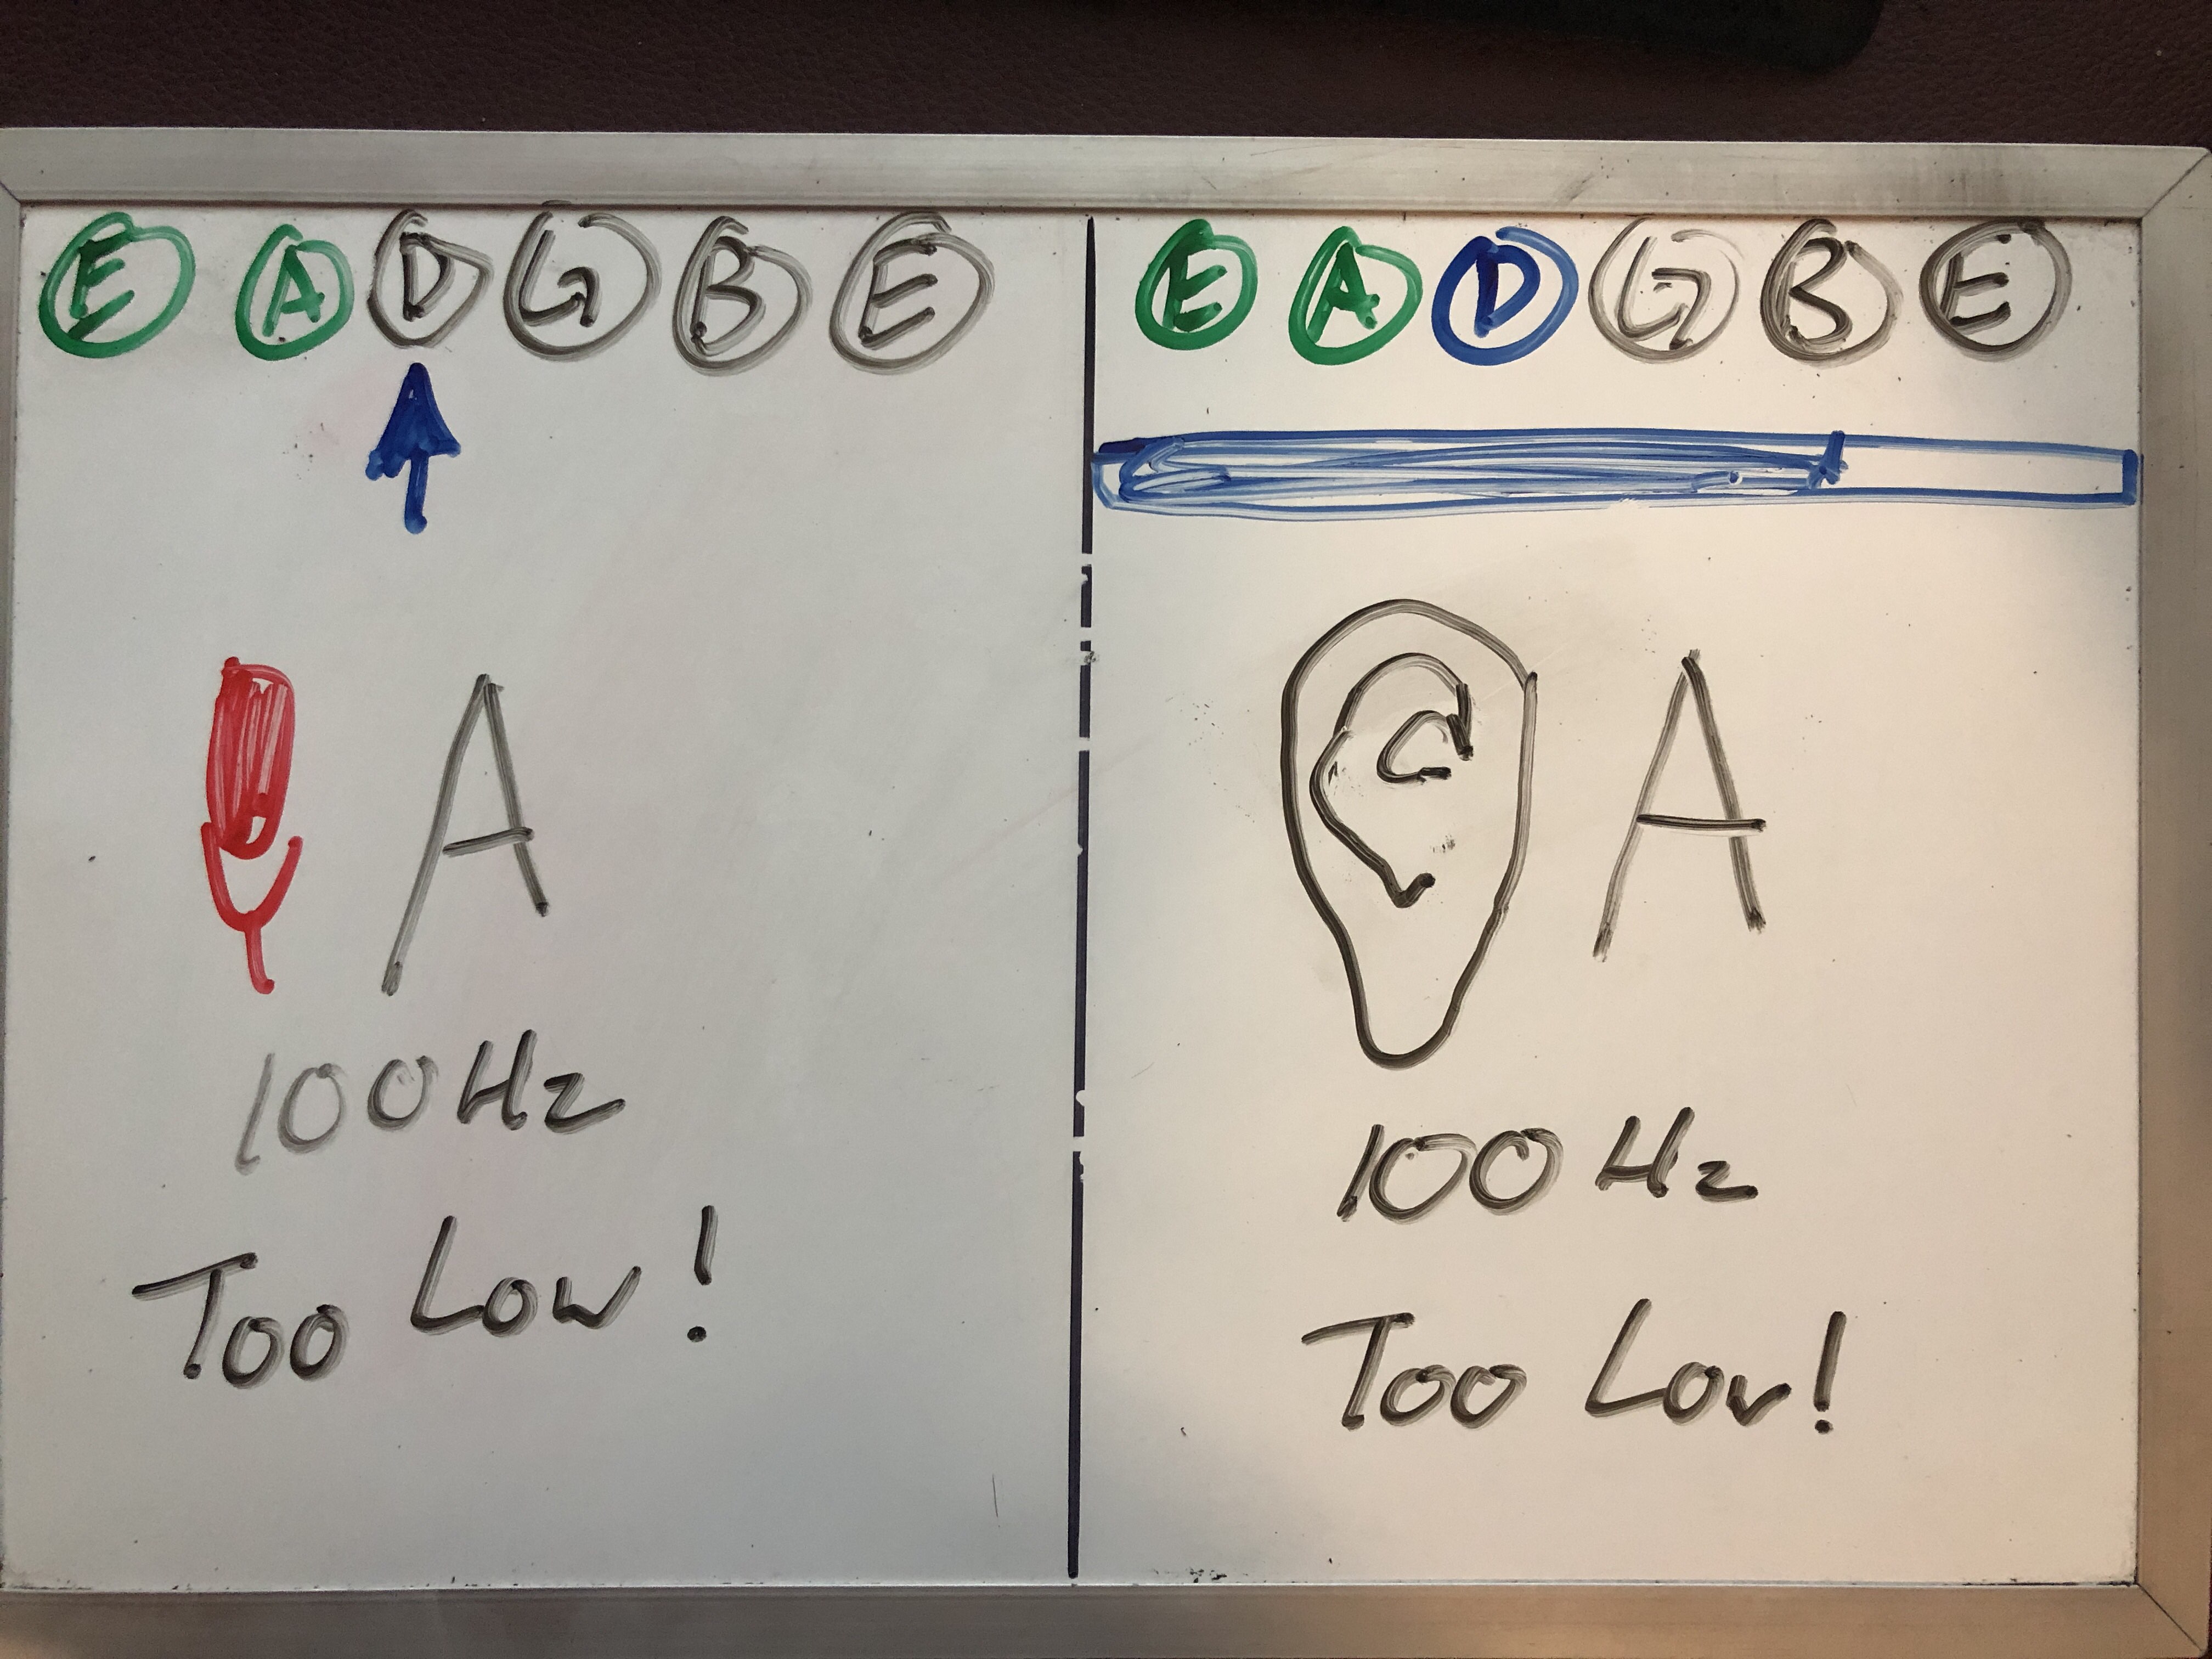 E A D G B E
A
100Hz
Too Low!
E A D G B E
A
100 Hz
Too Low!